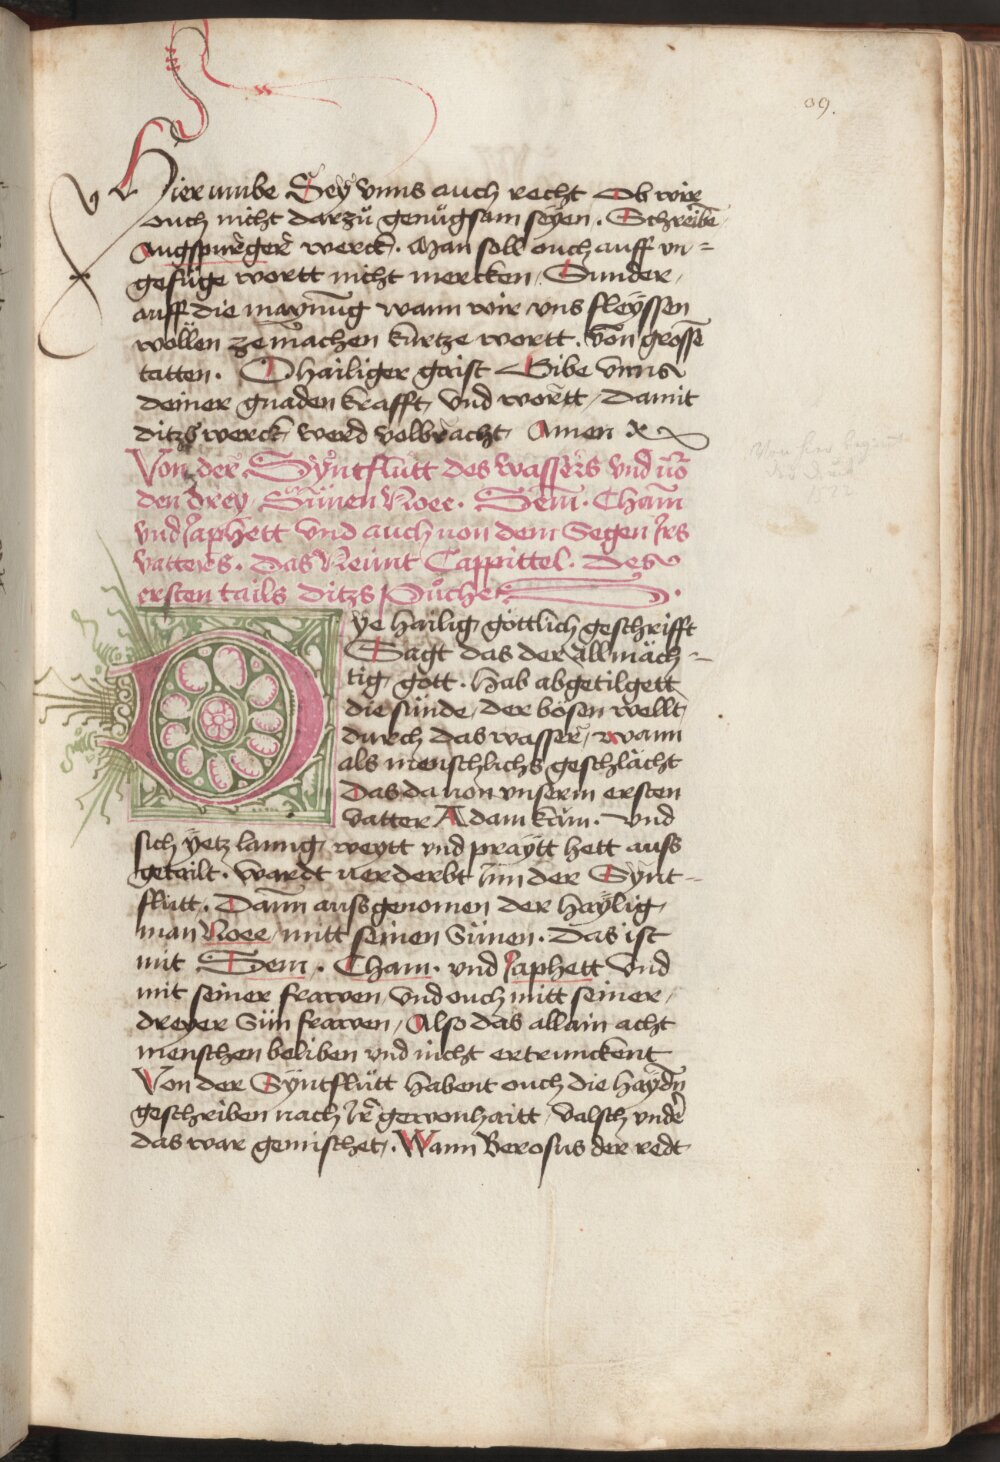 39.
Hierumbe Sey vnns auch recht Ob wir
ouch nicht darzů genůgsam seyen. Schreibē
Augspurger werck. Man soll ouch auff vn=
gefüge wortt nicht mercken, Sunder,
auff die maynūg wann wir vns fleyssen
wöllen zemachen kurtze wortt. von grossē
tatten. O hailiger gaist Gibe vnns
deiner gnaden krafft, vnd wortt, Damit
ditzs werck, werd volbracht, Amen
Von der Syntflutt des wassers vnd vō
den drey, Sünen Noee. Sem. Cham
vnd Japhett vnd auch uon dem Segen Jrs
vatters. Das Neünt Cappittel. Des
ersten tails ditzs Půches.
Dye hailig, göttlich geschrifft
Sagt das der allmäch=
tig, gott. Hab abgetilgett
die sünde, der bösen wellt
durch das wasser, wann
als menschlichs geschlächt
Das da uon vnserm ersten
vatter Adam kam. vnd
sich yetz lanng, weytt vnd praytt hett auss
getailt. wardt uerderbt Jnn der Synt=
flutt. Dann aussgenomen der haylig,
man Noee, mitt seinen Sünen. Das ist
mit Sem. Cham. vnd Japhett vnd
mit seiner frawen, vnd ouch mitt seiner,
dreyer Sün frawen, Also das allain acht
menschen beliben vnd nicht ertrunckent
Von der Syntflůtt habent ouch die haydn̄
geschriben nach Jr gewonhaitt, valsch vnder
das war gemischet,. Wann Berosus der redt